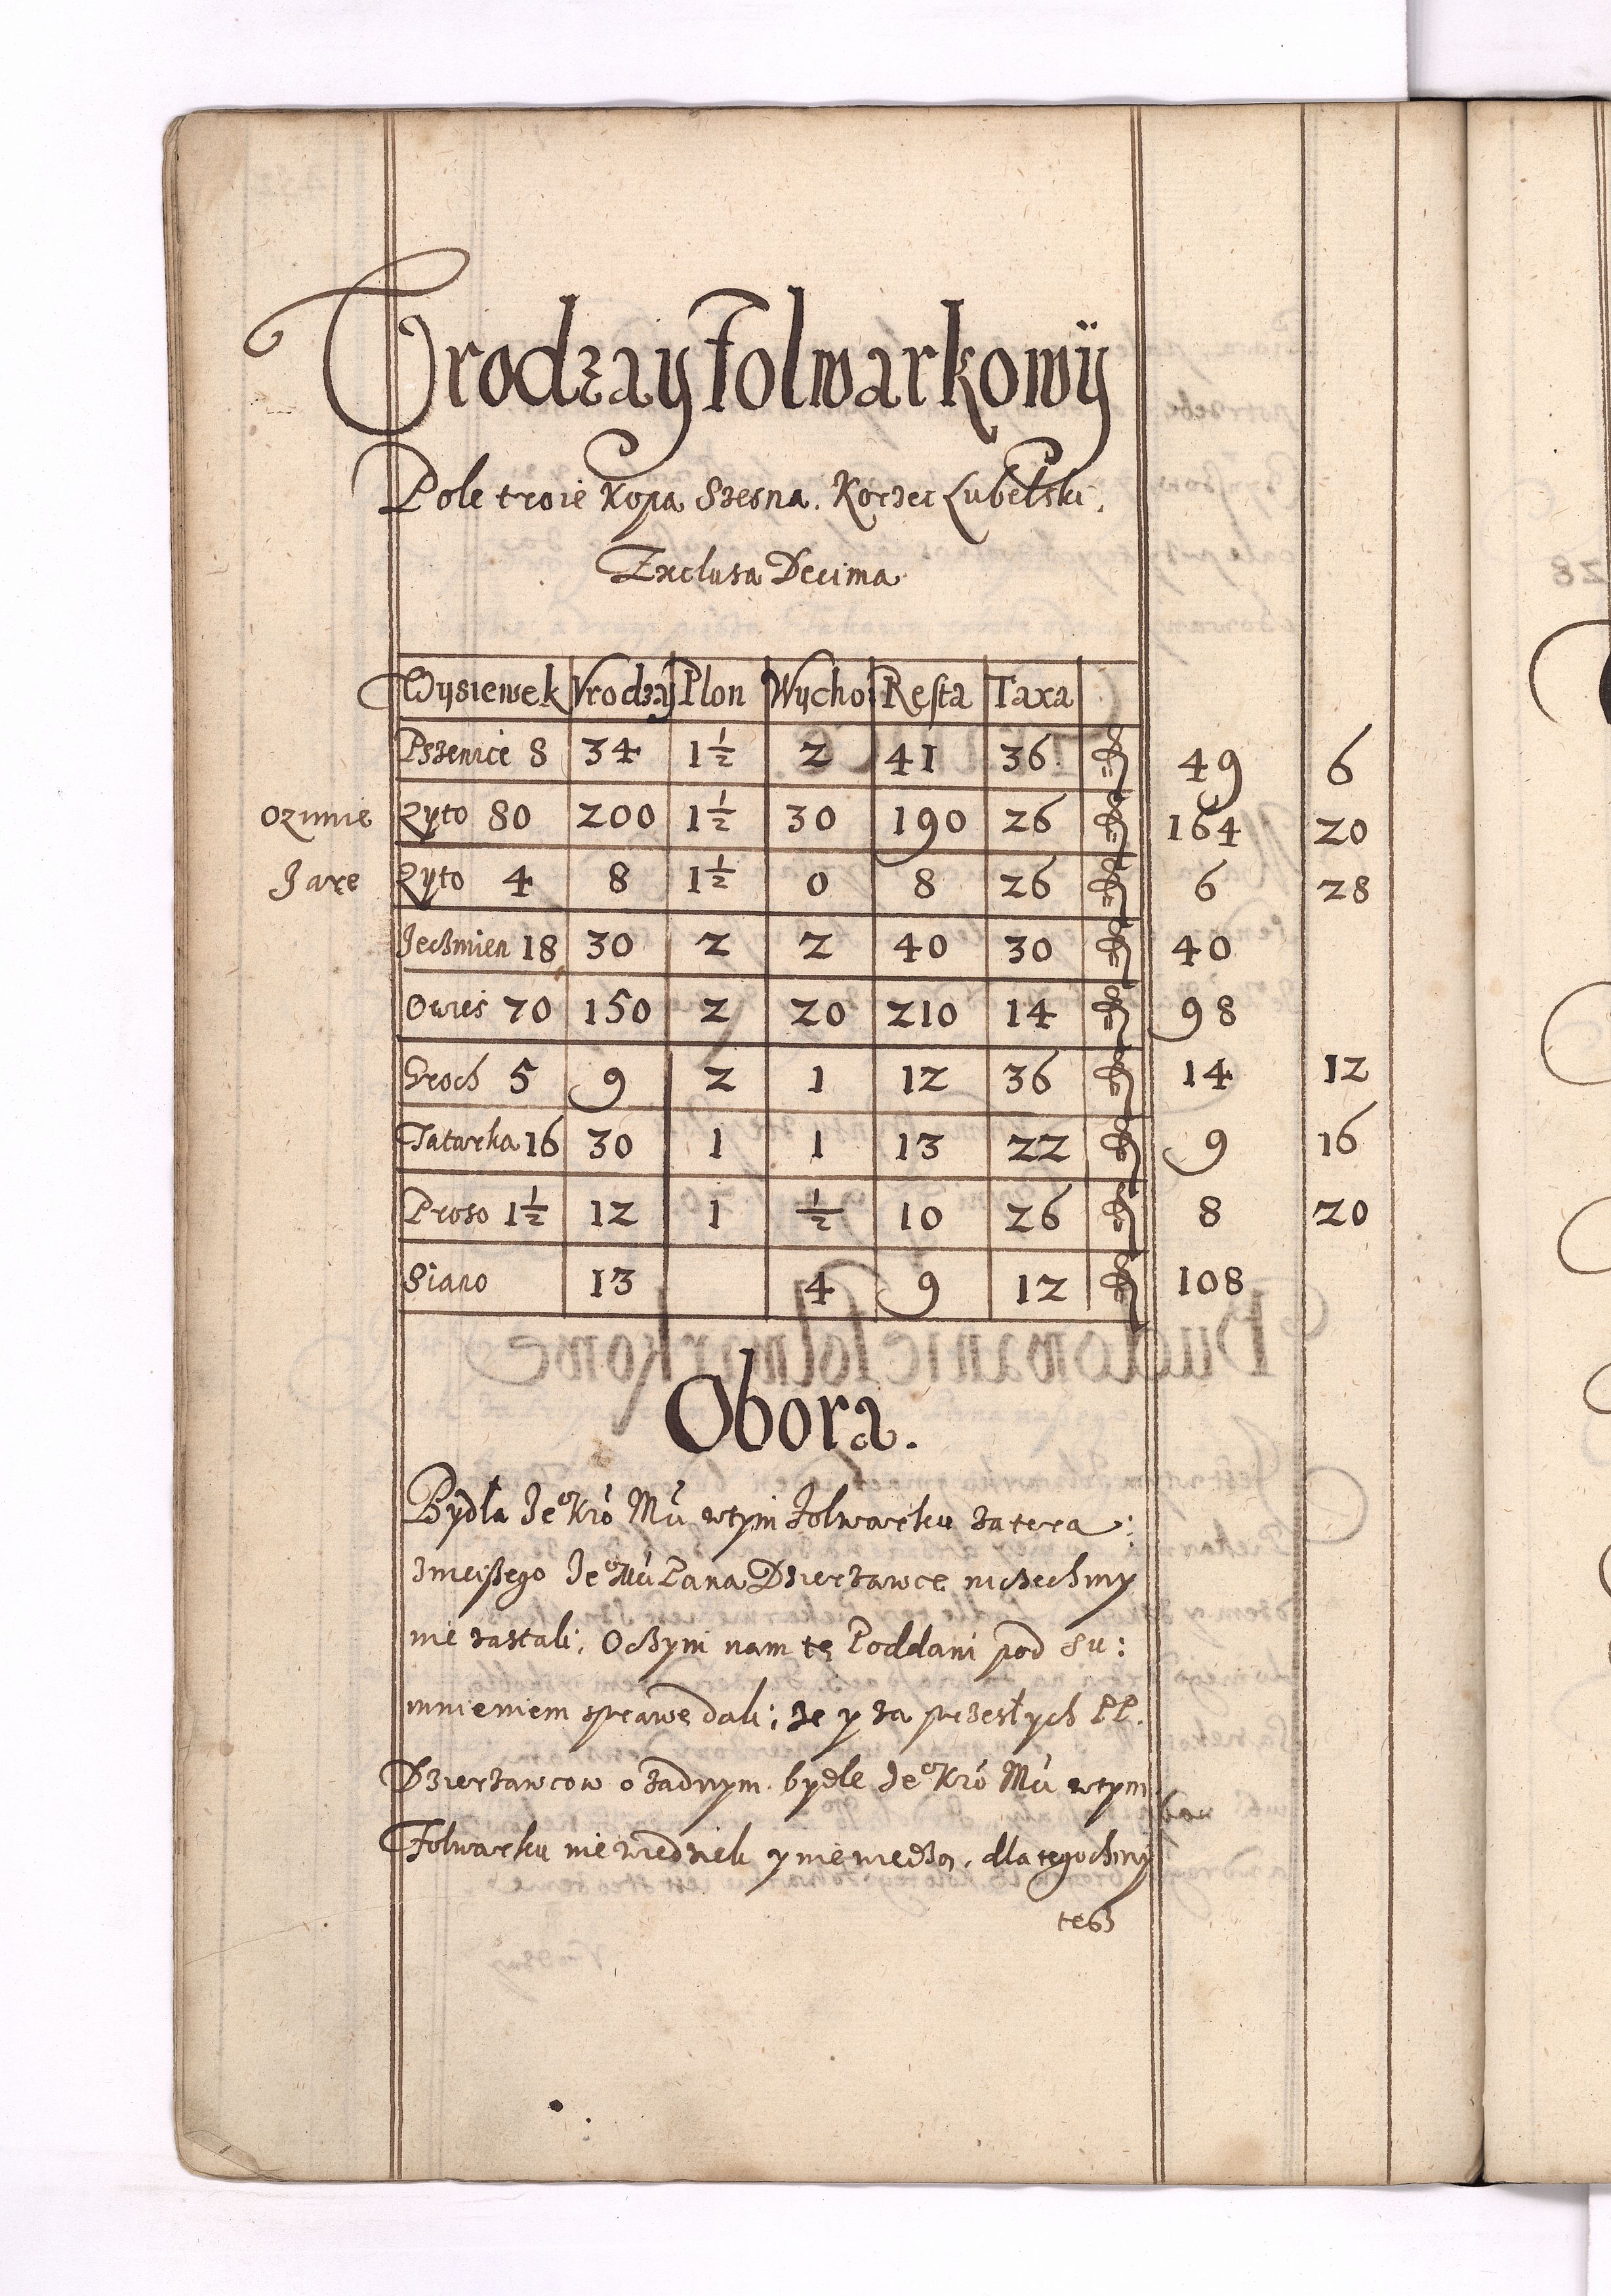 Vrodzay Folwarkowÿ
Pole troie Kopa Szesna. Korzec Lubelski.
Exclusa Decima
Wysiewek Vrodzaÿ Plon Wycho: Resta Taxa
Pszenice 8 34 1½ 2 41 36 49 6
Ozimie Zyto 80 200 1½ 30 190 26 164 20
Jare Zyto 4 8 1½ 0 8 26 6 28
Jeczmien 18 30 2 2 40 30 40
Owies 70 150 2 20 210 14 98
Groch 5 9 2 1 12 36 14 12
Tatarka 16 30 1 1 13 22 9 16
Proso 1½ 12 1 ½ 10 26 8 20
Siano 13 4 9 12 108
Obora.
Bydła Je° Kró Mći wtym Folwarku za tera:
znieiszego Je° Mći Pana Dzierzawce niczechmy
nie zastali; Oczym nam tę Poddani pod su:
mnieniem sprawę dali; ze y za przeszłych PP.
Dzierzawcow o zadnym bydle Je° Kró Mći wtym
Folwarku nie wiedzieli y nie wiedzą, dla tegochmy
tesz